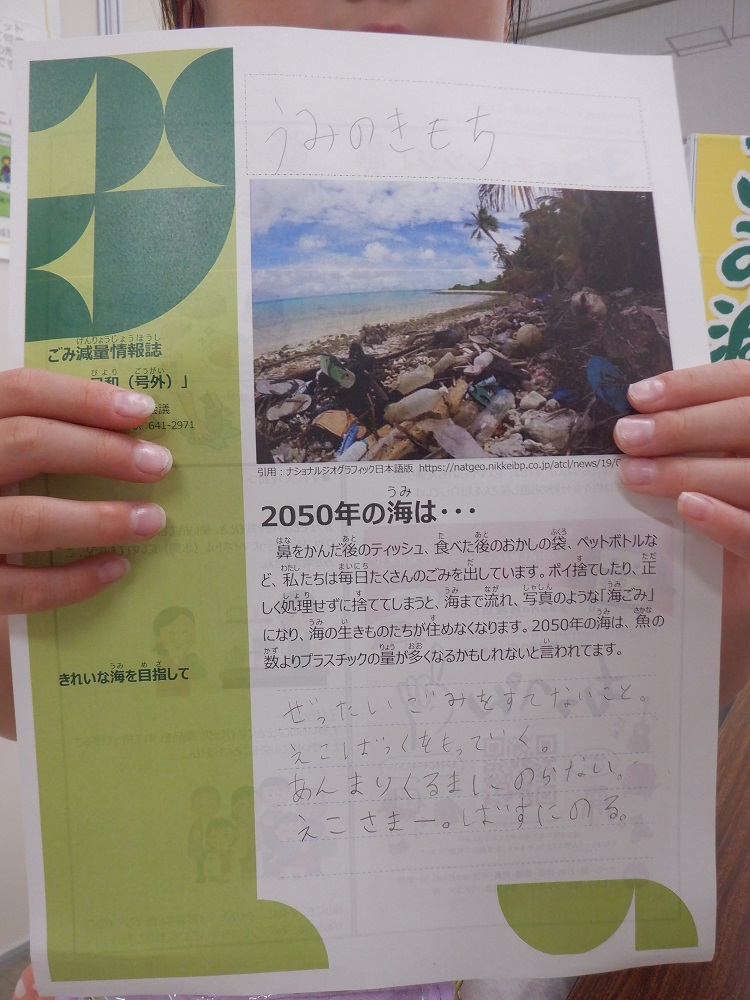 うみのきもち
ごみ減量情報誌
和（号外）」
641-2971
引用：ナショナルジオグラフィック日本語版 https://natgeo.nikkeibp.co.jp/atcl/news/19/
2050年の海は・・・
鼻をかんだ後のティッシュ、食べた後のおかしの袋、ペットボトルな
ど、私たちは毎日たくさんのごみを出しています。ポイ捨てしたり、正
しく処理せずに捨ててしまうと、海まで流れ、写真のような「海ごみ」
になり、海の生きものたちが住めなくなります。2050年の海は、魚の
数よりプラスチックの量が多くなるかもしれないと言われてます。
きれいな海を目指して
ぜったいごみをすてないこと。
えこばっくをもっていく。
あんまりくるまにのらない。
えこさまー。ばすにのる。